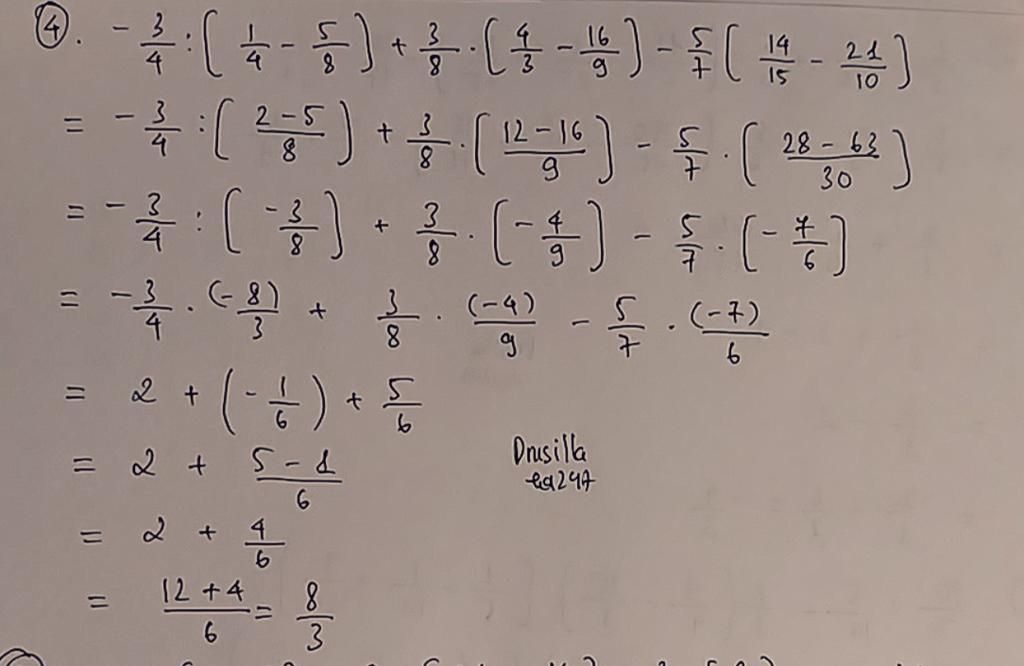 ④. - 3/4 : ( 1/4 - 5/8 ) + 3/8 · ( 4/3 - 16/9 ) - 5/7 ( 14/15 - 21/10 )
= - 3/4 : ( 2-5/8 ) + 3/8 · ( 12-16/9 ) - 5/7 · ( 28-63/30 )
= - 3/4 : ( -3/8 ) + 3/8 · ( - 4/9 ) - 5/7 · ( - 7/6 )
= - 3/4 · (-8)/3 + 3/8 · (-4)/9 - 5/7 · (-7)/6
= 2 + ( - 1/6 ) + 5/6
= 2 + 5-1/6
Drusilla
ea297
= 2 + 4/6
= 12+4/6 = 8/3